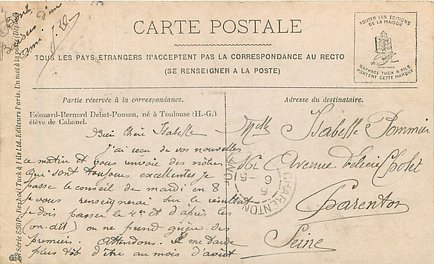 CARTE POSTALE
TOUS LES PAYS ETRANGERS N'ACCEPTENT PAS LA CORRESPONDANCE AU RECTO
(SE RENSEIGNER A LA POSTE)
TOUTES LES EDITIONS
DE LA MAISON
RAPHAEL TUCK & FILS
PORTENT CETTE MARQUE
Partie réservée à la correspondance.
Edouard-Bernard Debat-Ponsan, né à Toulouse (H.-G.)
élève de Cabanel.
Isabelle
J'ai eu de vos nouvelles
ce matin et vous envoie des
qui sont toujours excellentes je
passe le conseil de mardi en 8
je vous renseignerai sur le
dois passer le 4e et d'après les
(on dit) on ne prend guère des
premiers. Attendons. Il me tarde
plus dit d'être au mois d'août
Adresse du destinataire.
Melle Isabelle Pommier
Avenue
Charenton
Seine
CHARENTON
Raphael Tuck & Fils Ltd, Editeurs Paris.